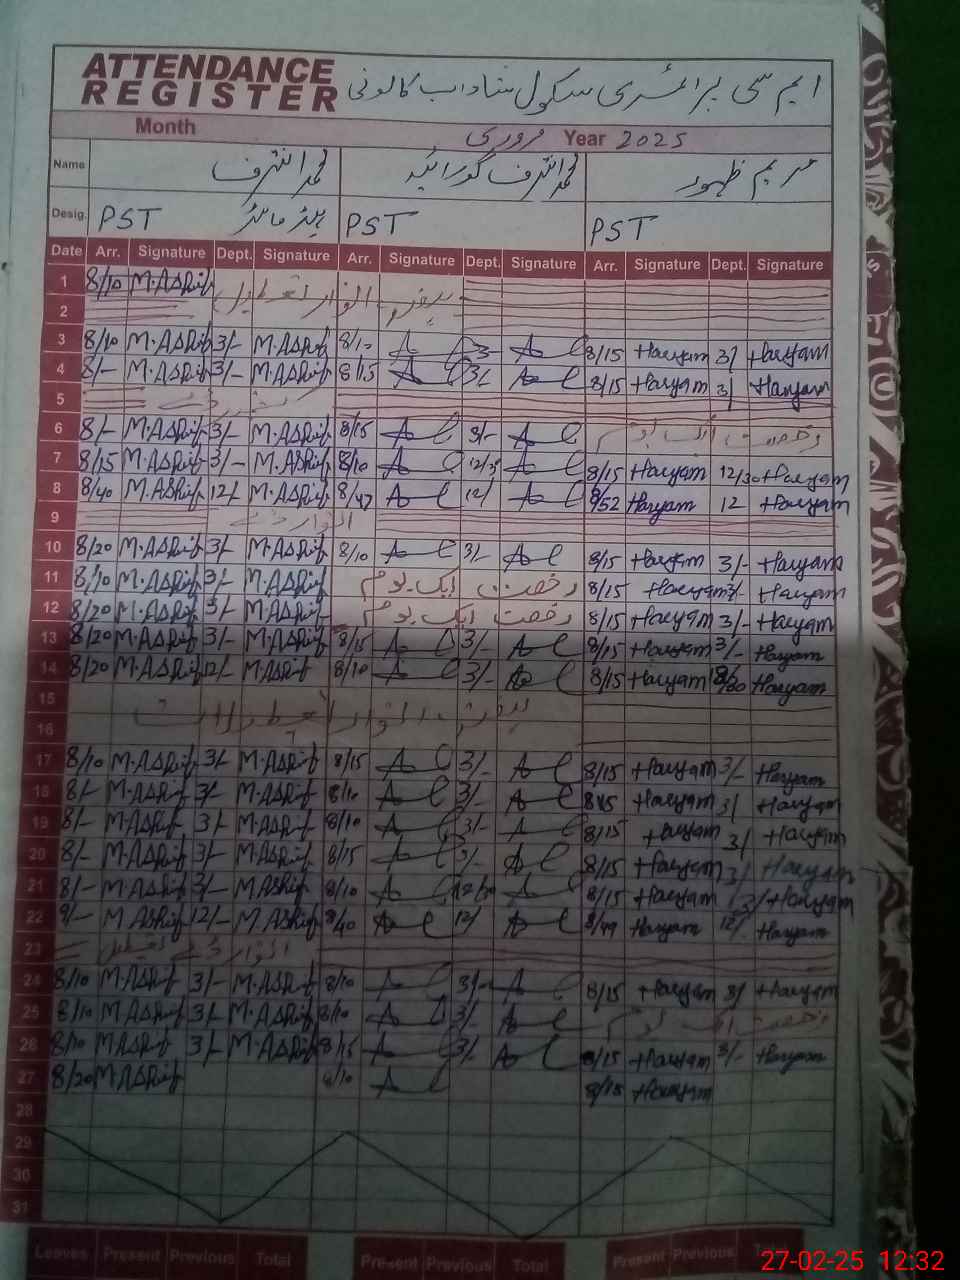 ATTENDANCE REGISTER ایم سی پرائمری سکول شاداب کالونی
Month فروری Year 2025
Name محمد اشرف محمد اشرف گورائیہ مریم ظہور
Desig. PST ہیڈ ماسٹر PST PST
Date Arr. Signature Dept. Signature Arr. Signature Dept. Signature Arr. Signature Dept. Signature
1 8/10 M.AShrif
2
3 8/10 M.AShrif 3/- M.AShrif 8/10 3- 8/15 Haryam 3/ Haryam
4 8/- M.AShrif 3/- M.AShrif 8/15 3/- 8/15 Haryam 3/ Haryam
5
6 8/- M.AShrif 3/- M.AShrif 8/15 3/- رخصت ایک یوم
7 8/15 M.AShrif 3/- M.AShrif 8/10 8/15 Haryam 12/30 Haryam
8 8/40 M.AShrif 12/- M.AShrif 8/47 12/ 8/52 Haryam 12 Haryam
9 اتوار
10 8/20 M.AShrif 3/- M.AShrif 8/10 3/- 8/15 Haryam 3/- Haryam
11 8/10 M.AShrif 3/- M.AShrif رخصت ایک یوم 8/15 Haryam 3/- Haryam
12 8/20 M.AShrif 3/- M.AShrif رخصت ایک یوم 8/15 Haryam 3/- Haryam
13 8/20 M.AShrif 3/- M.AShrif 8/15 3/- 8/15 Haryam 3/- Haryam
14 8/20 M.AShrif 12/- M.AShrif 8/10 3/- 8/15 Haryam Haryam
15
16
17 8/10 M.AShrif 3/- M.AShrif 8/15 3/- 8/15 Haryam 3/- Haryam
18 8/- M.AShrif 3/- M.AShrif 8/10 3/- 8/15 Haryam 3/ Haryam
19 8/- M.AShrif 3/- M.AShrif 8/10 3/- 8/15 Haryam 3/ Haryam
20 8/- M.AShrif 3/- M.AShrif 8/15 3/- 8/15 Haryam 3/ Haryam
21 8/- M.AShrif 3/- M.AShrif 8/10 8/15 Haryam 3/ Haryam
22 M.AShrif 12/- M.AShrif 8/40 12/ 8/49 Haryam 12/- Haryam
23 اتوار کی تعطیل
24 8/10 M.AShrif 3/- M.AShrif 8/10 3/- 8/15 Haryam 3/ Haryam
25 8/10 M.AShrif 3/- M.AShrif 8/10 3/- رخصت ایک یوم
26 8/10 M.AShrif 3/- M.AShrif 8/15 3/- 8/15 Haryam 3/- Haryam
27 8/20 M.AShrif 8/10 8/15 Haryam
28
29
30
31
Leaves Present Previous Total Present Previous Total Present Previous Total
27-02-25 12:32